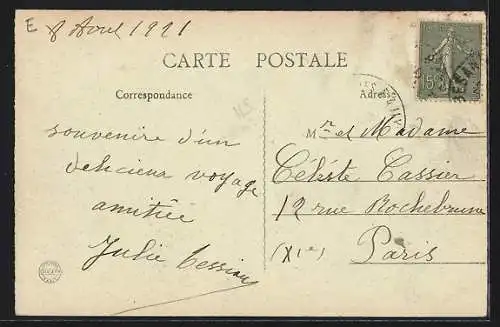 E 8 Aout 1921
CARTE POSTALE
Correspondance
Adresse
souvenire d'un
delicieux voyage
amitiée
Julie Tessian
Mr et Madame
Céleste Cassier
12 rue Rochebrune
(XIe) Paris
15